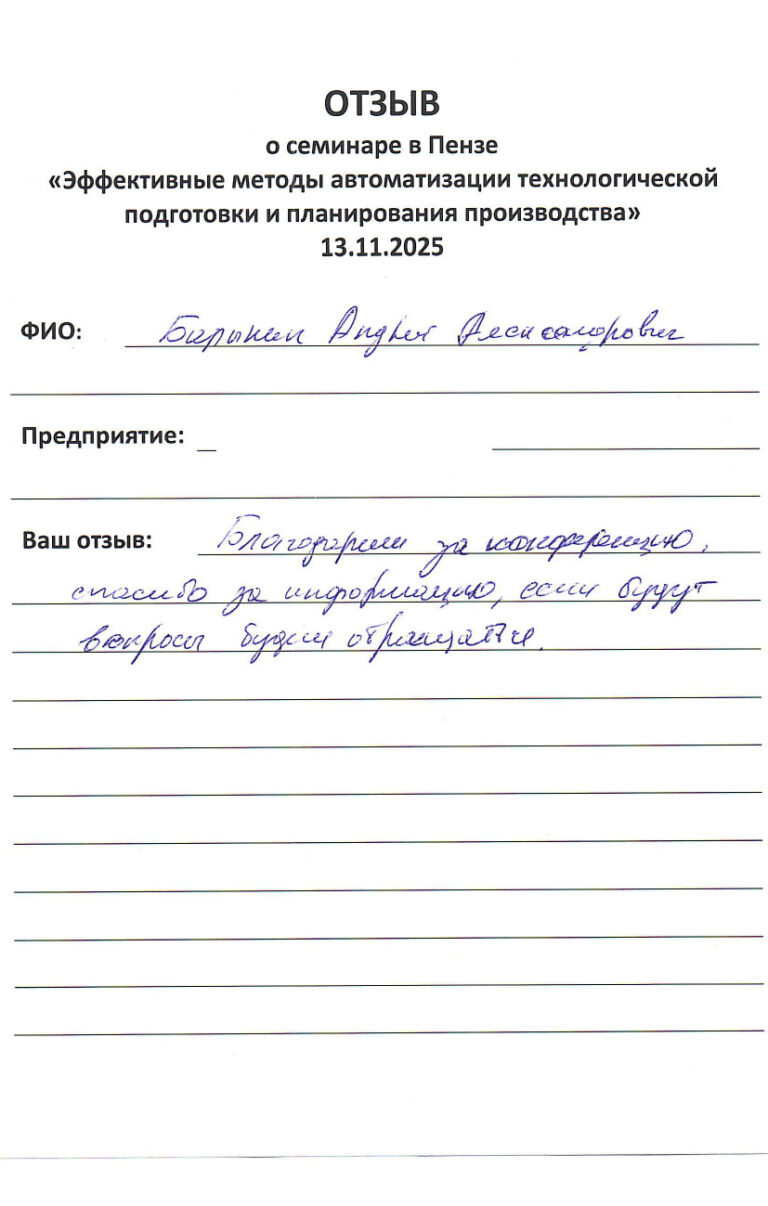 ОТЗЫВ
о семинаре в Пензе
«Эффективные методы автоматизации технологической
подготовки и планирования производства»
13.11.2025
ФИО: Андрей Александрович
Предприятие:
Ваш отзыв: Благодарим за конференцию,
спасибо за информацию, если будут
вопросы будем обращаться.